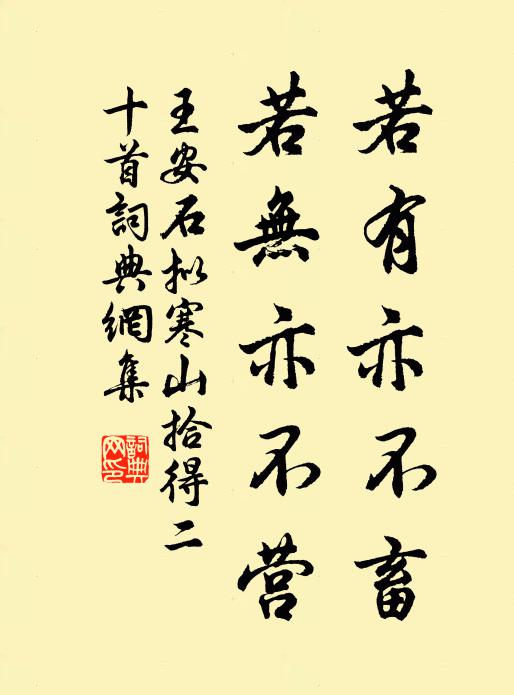 若有亦不畜
若無亦不营
王安石拟寒山拾得二
十首詞典網集
詞典网印